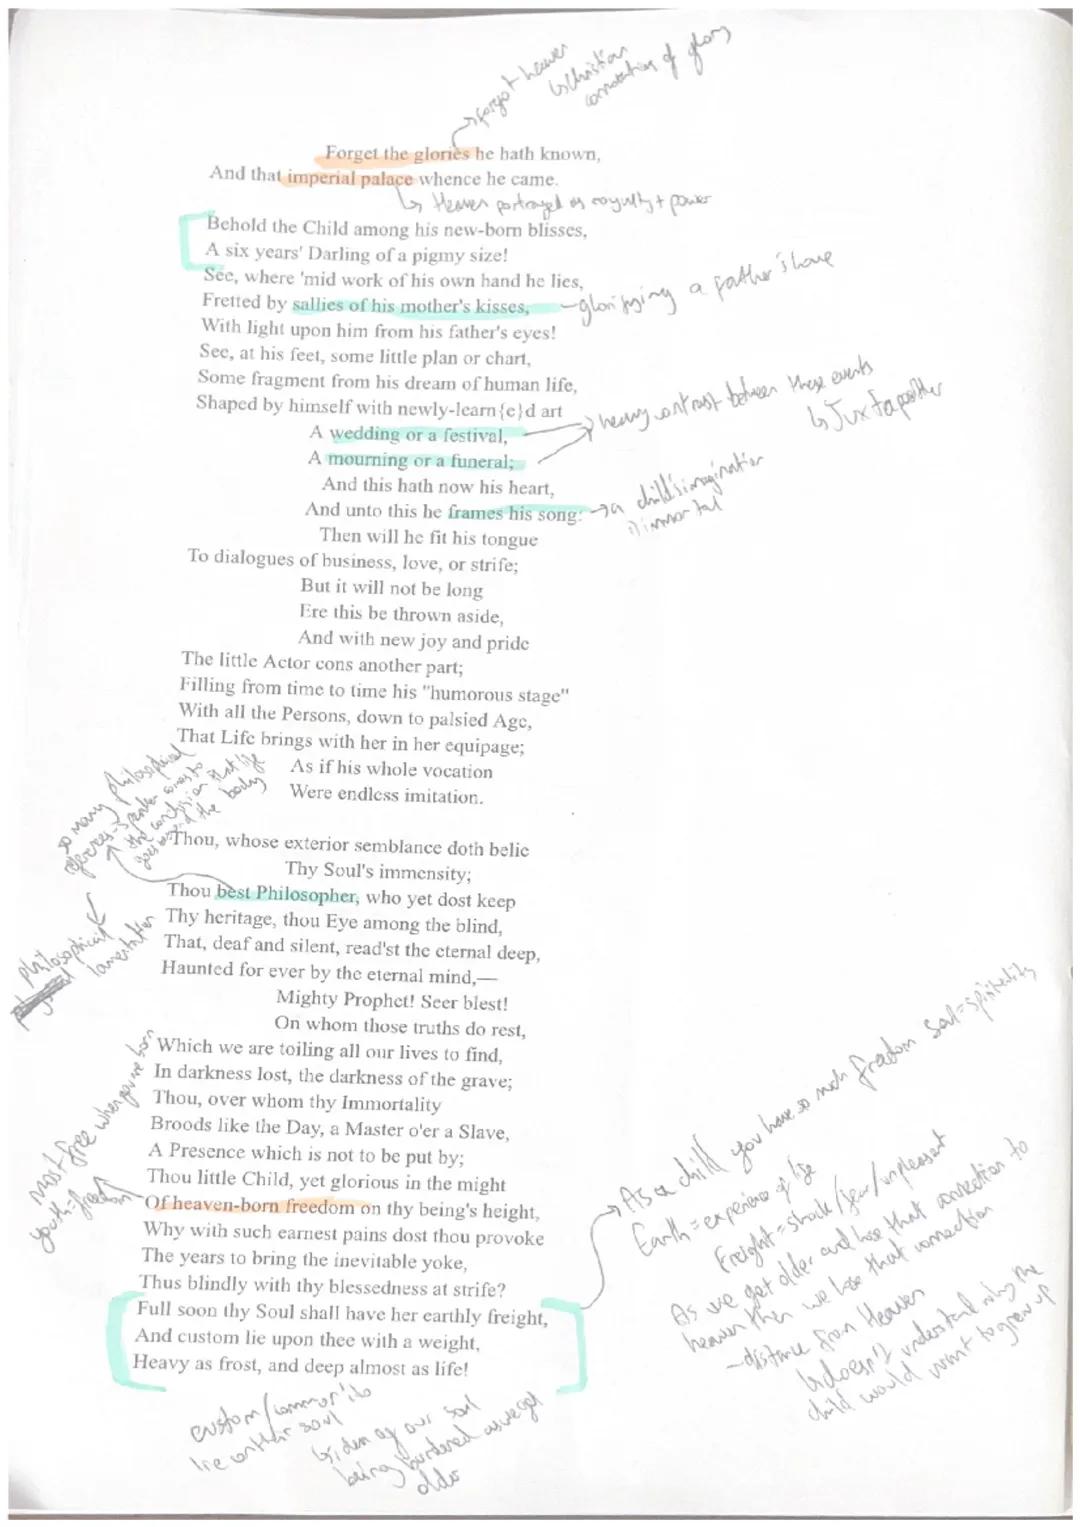 forgot heaven
↳Christian
connotations of glory
Forget the glories he hath known,
And that imperial palace whence he came.
↳ Heaven portrayed as royalty + power
Behold the Child among his new-born blisses,
A six years' Darling of a pigmy size!
See, where 'mid work of his own hand he lies,
Fretted by sallies of his mother's kisses,
- glorifying a father's love
With light upon him from his father's eyes!
See, at his feet, some little plan or chart,
Some fragment from his dream of human life,
Shaped by himself with newly-learn{e}d art
A wedding or a festival,
heavy contrast between these events
↳ Juxtaposition
A mourning or a funeral;
And this hath now his heart,
And unto this he frames his song:
→ a child's imagination
is immortal
Then will he fit his tongue
To dialogues of business, love, or strife;
But it will not be long
Ere this be thrown aside,
And with new joy and pride
The little Actor cons another part;
Filling from time to time his "humorous stage"
With all the Persons, down to palsied Age,
That Life brings with her in her equipage;
As if his whole vocation
Were endless imitation.
so many philosophical
speaker comes to
the conclusion that life
goes beyond the body
Thou, whose exterior semblance doth belie
Thy Soul's immensity;
Thou best Philosopher, who yet dost keep
Thy heritage, thou Eye among the blind,
That, deaf and silent, read'st the eternal deep,
Haunted for ever by the eternal mind,—
philosophical
lamentation
Mighty Prophet! Seer blest!
On whom those truths do rest,
Which we are toiling all our lives to find,
In darkness lost, the darkness of the grave;
Thou, over whom thy Immortality
Broods like the Day, a Master o'er a Slave,
A Presence which is not to be put by;
Thou little Child, yet glorious in the might
Of heaven-born freedom on thy being's height,
most free when you're born
youth = freedom
Why with such earnest pains dost thou provoke
The years to bring the inevitable yoke,
Thus blindly with thy blessedness at strife?
Full soon thy Soul shall have her earthly freight,
And custom lie upon thee with a weight,
Heavy as frost, and deep almost as life!
As a child you have so much freedom soul=spirituality
Earth = experience of life
Freight = shock/fear/unpleasant
As we get older and lose that connection to
heaven then we lose that connection
- distance from Heaven
↳ doesn't understand why the
child would want to grow up
custom/common
lie on their soul
↳ idea of our soul
being burdened as we get
older